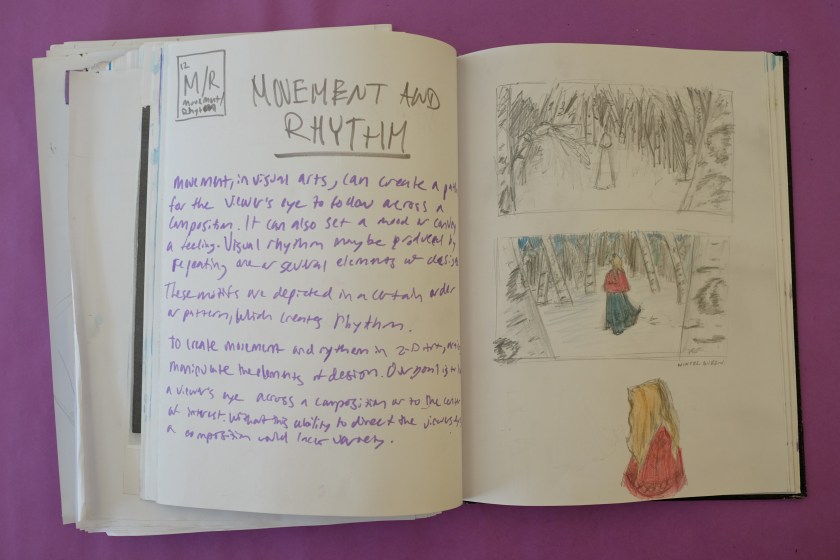 12
M/R
movement/
MOVEMENT AND
RHYTHM
movement, in visual arts, can create a
for the viewer's eye to follow across a
composition. It can also set a mood or
a feeling. Visual rhythm may be produced by
repeating one or several elements of
These motifs are depicted in a certain order
or pattern, which creates rhythm.
To create movement and in 2-D
manipulate the elements of design. Our goal is to
a viewer's eye across a composition or to the
of interest. Without this ability to direct the
a composition would
WINTER